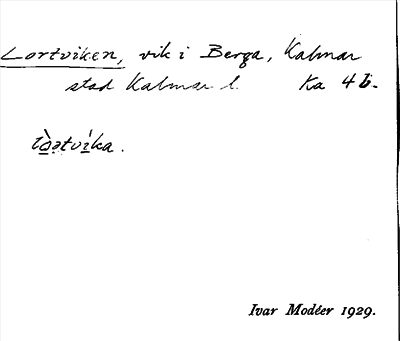 Lortviken, vik i Berga, Kalmar
stad Kalmar l. Ka 4 b.
Ivar Modéer 1929.